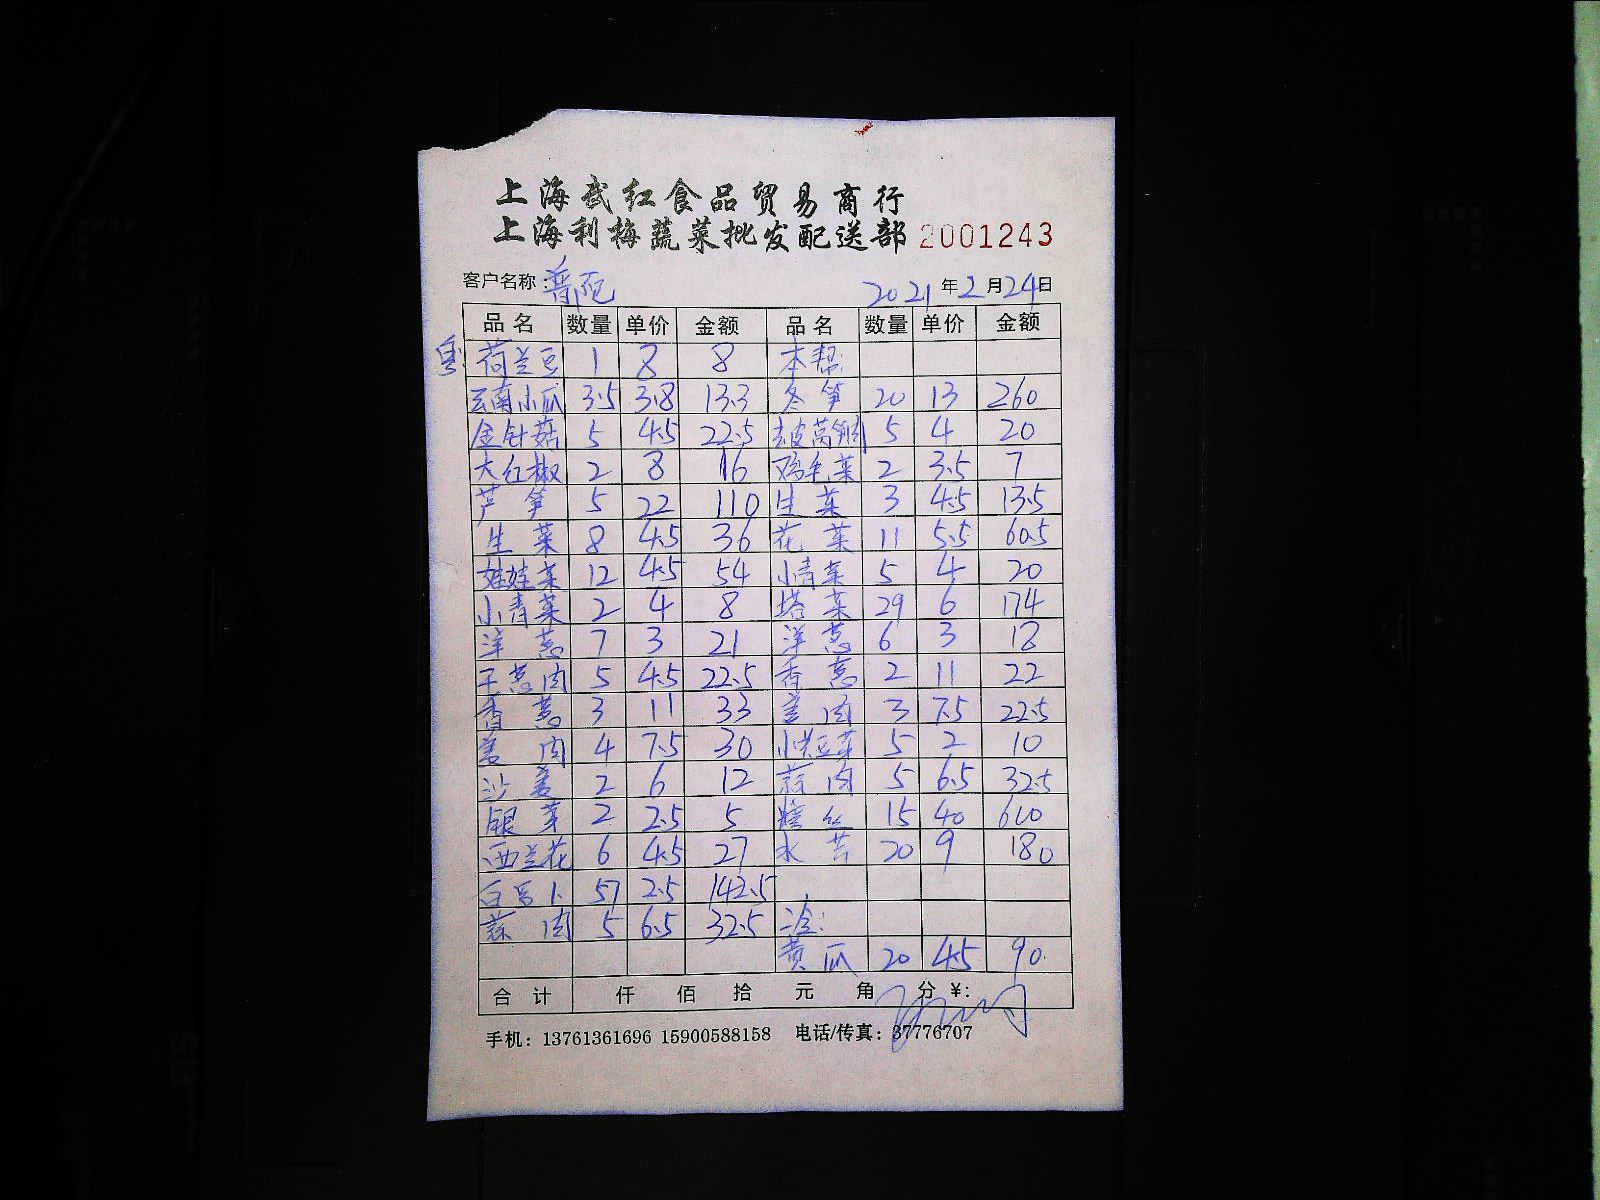 上海武红食品贸易商行
上海利梅蔬菜批发配送部 2001243
客户名称：普陀 2021年2月24日
品名 数量 单价 金额 品名 数量 单价 金额
粤: 荷兰豆 1 8 8 本帮:
云南小瓜 3.5 3.8 13.3 冬笋 20 13 260
金针菇 5 4.5 22.5 去皮莴笋 5 4 20
大红椒 2 8 16 鸡毛菜 2 3.5 7
芦笋 5 22 110 生菜 3 4.5 13.5
生菜 8 4.5 36 花菜 11 5.5 60.5
娃娃菜 12 4.5 54 小青菜 5 4 20
小青菜 2 4 8 塔菜 29 6 174
洋葱 7 3 21 洋葱 6 3 18
干葱肉 5 4.5 22.5 香葱 2 11 22
香葱 3 11 33 姜肉 3 7.5 22.5
姜肉 4 7.5 30 小黄豆芽 5 2 10
沙姜 2 6 12 蒜肉 5 6.5 32.5
银芽 2 2.5 5 丝 15 40 600
西兰花 6 4.5 27 水 20 9 180
白萝卜 57 2.5 142.5
蒜肉 5 6.5 32.5 冷:
黄瓜 20 4.5 90
合计 仟 佰 拾 元 角 分 ¥:
手机：13761361696 15900588158 电话/传真：37776707